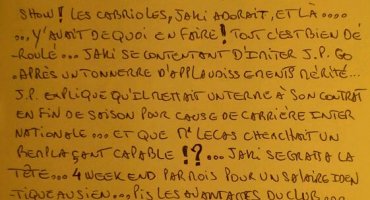 SHOW! LES CABRIOLES, JAKI ADORAIT, ET LÀ ....
... Y'AVAIT DE QUOI EN FAIRE! TOUT C'EST BIEN DÉ-
ROULÉ... JAKI SE CONTENTANT D'IMITER J.P. GO
. APRÈS UN TONNERRE D'APPLAUDISSEMENTS MÉRITÉ...
J.P. EXPLIQUE QU'IL METTAIT UN TERME À SON CONTRAT
EN FIN DE SAISON POUR CAUSE DE CARRIÈRE INTER
NATIONALE... ET QUE Mr LECAS CHERCHAIT UN
REMPLAÇANT CAPABLE !?... JAKI SE GRATTA LA
TÊTE... 4 WEEK END PAR MOIS POUR UN SALAIRE IDEN
TIQUE AU SIEN... PIS LES AVANTAGES DU CLUB...